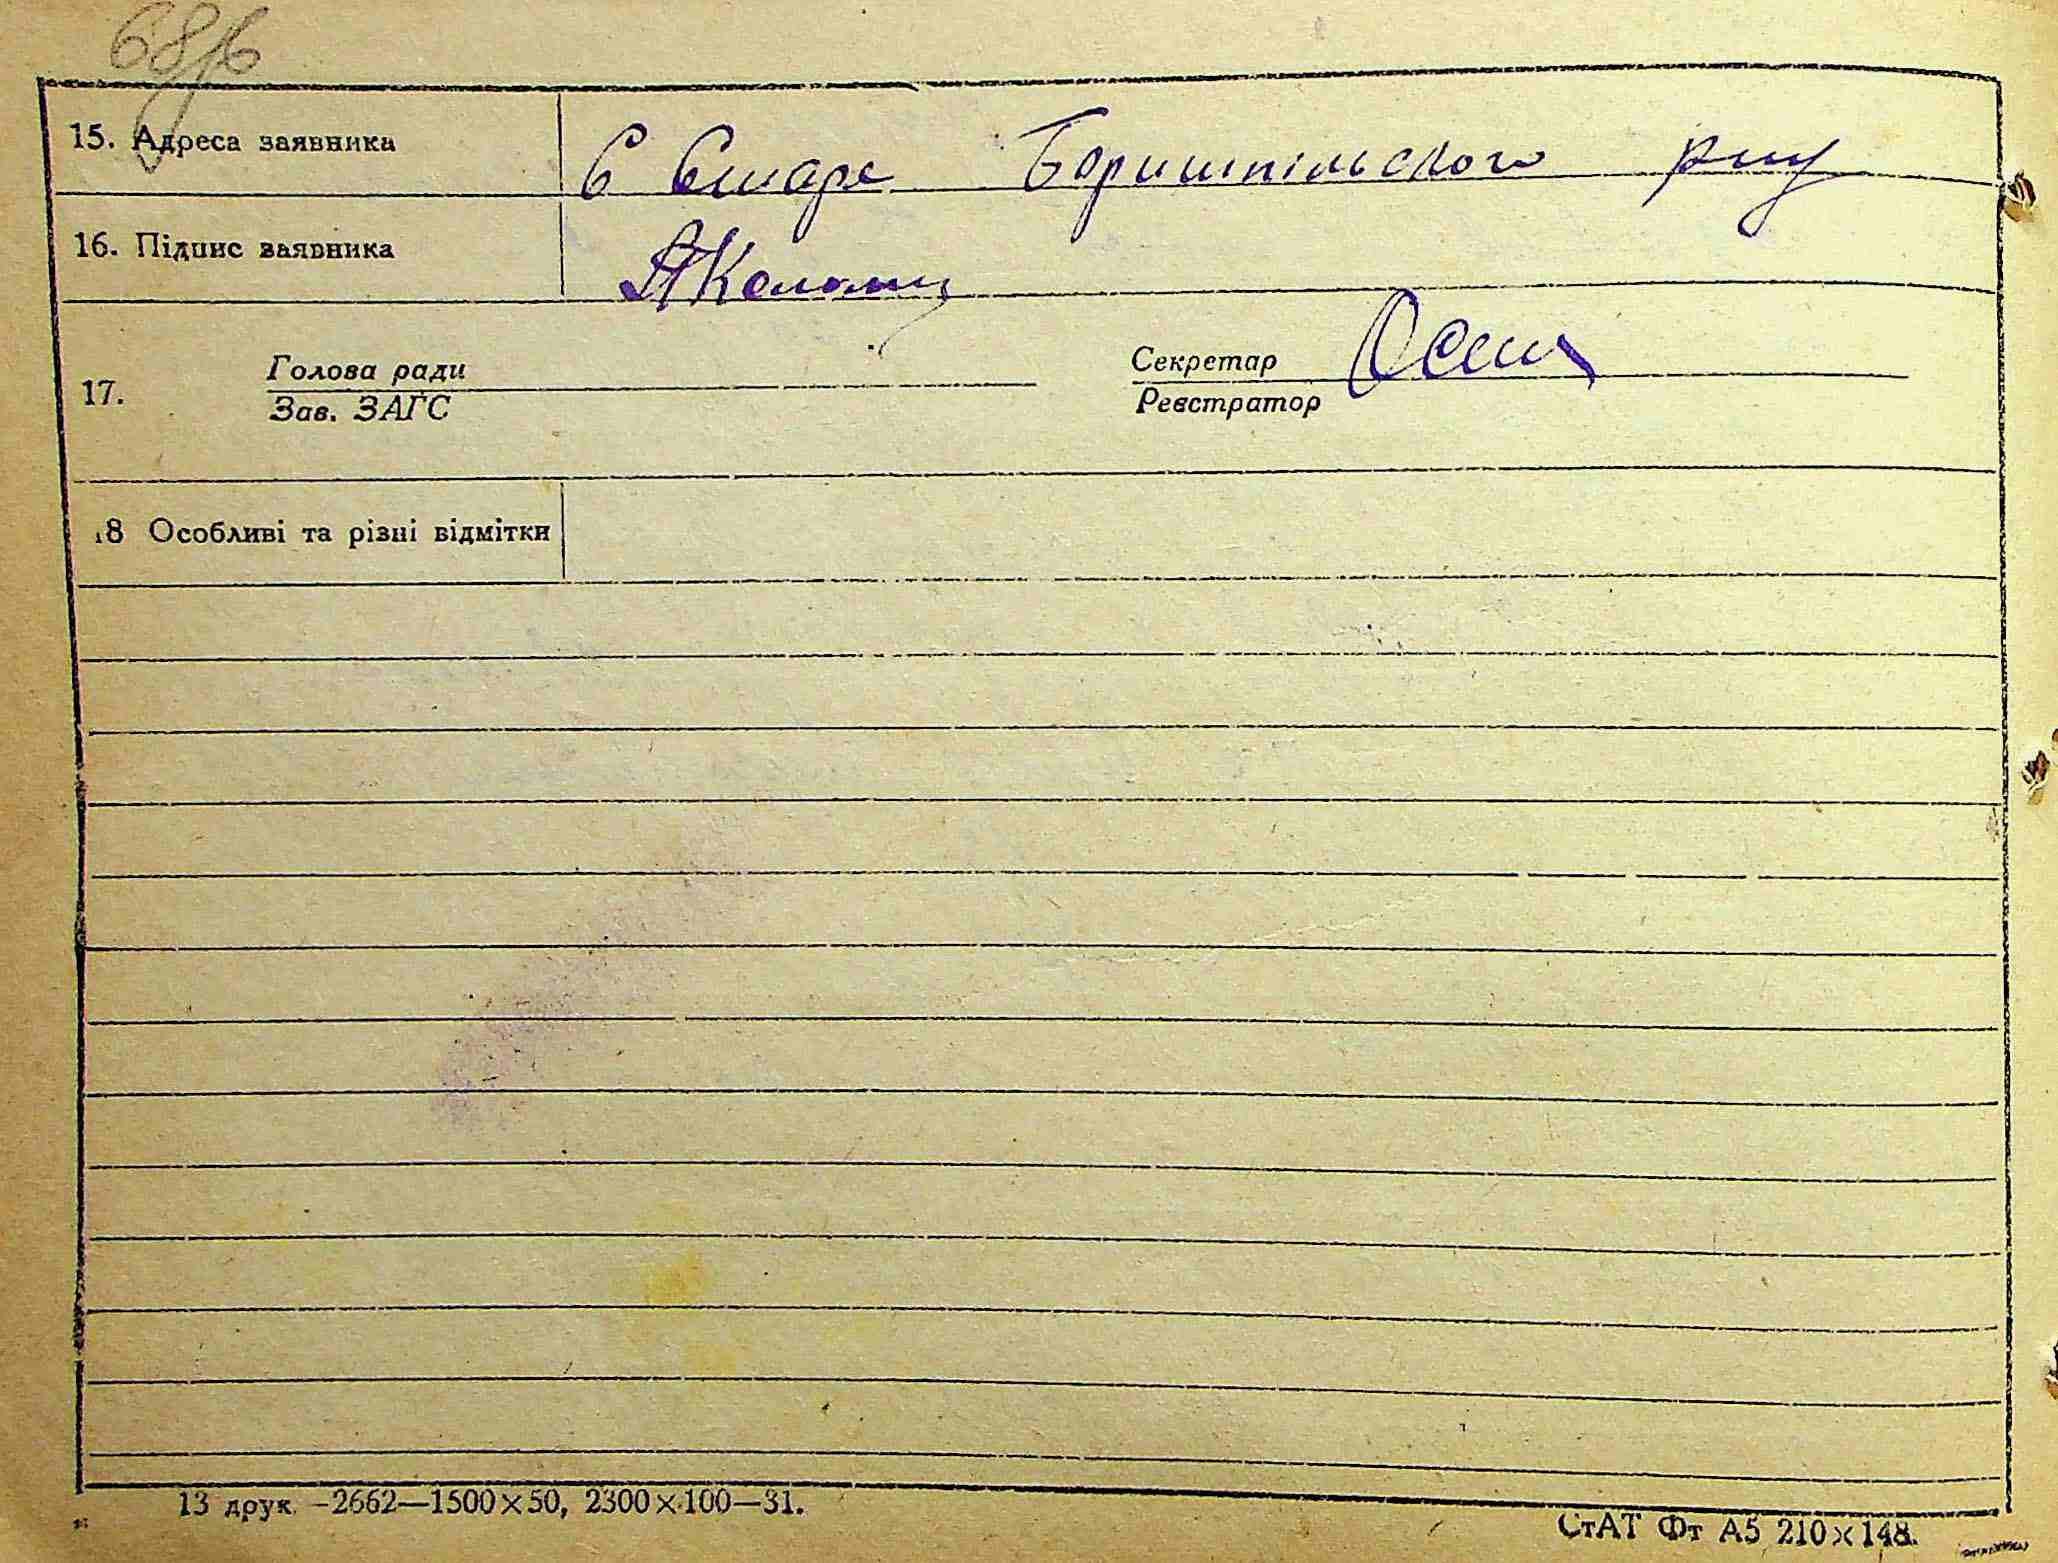 68/6
15. Адреса заявника С Старе Бориспільского р-ну
16. Підпис заявника
17. Голова ради Секретар
Зав. ЗАГС Реєстратор
18 Особливі та різні відмітки
13 друк. -2662—1500×50, 2300×100—31.
СтАТ Фт А5 210×148.